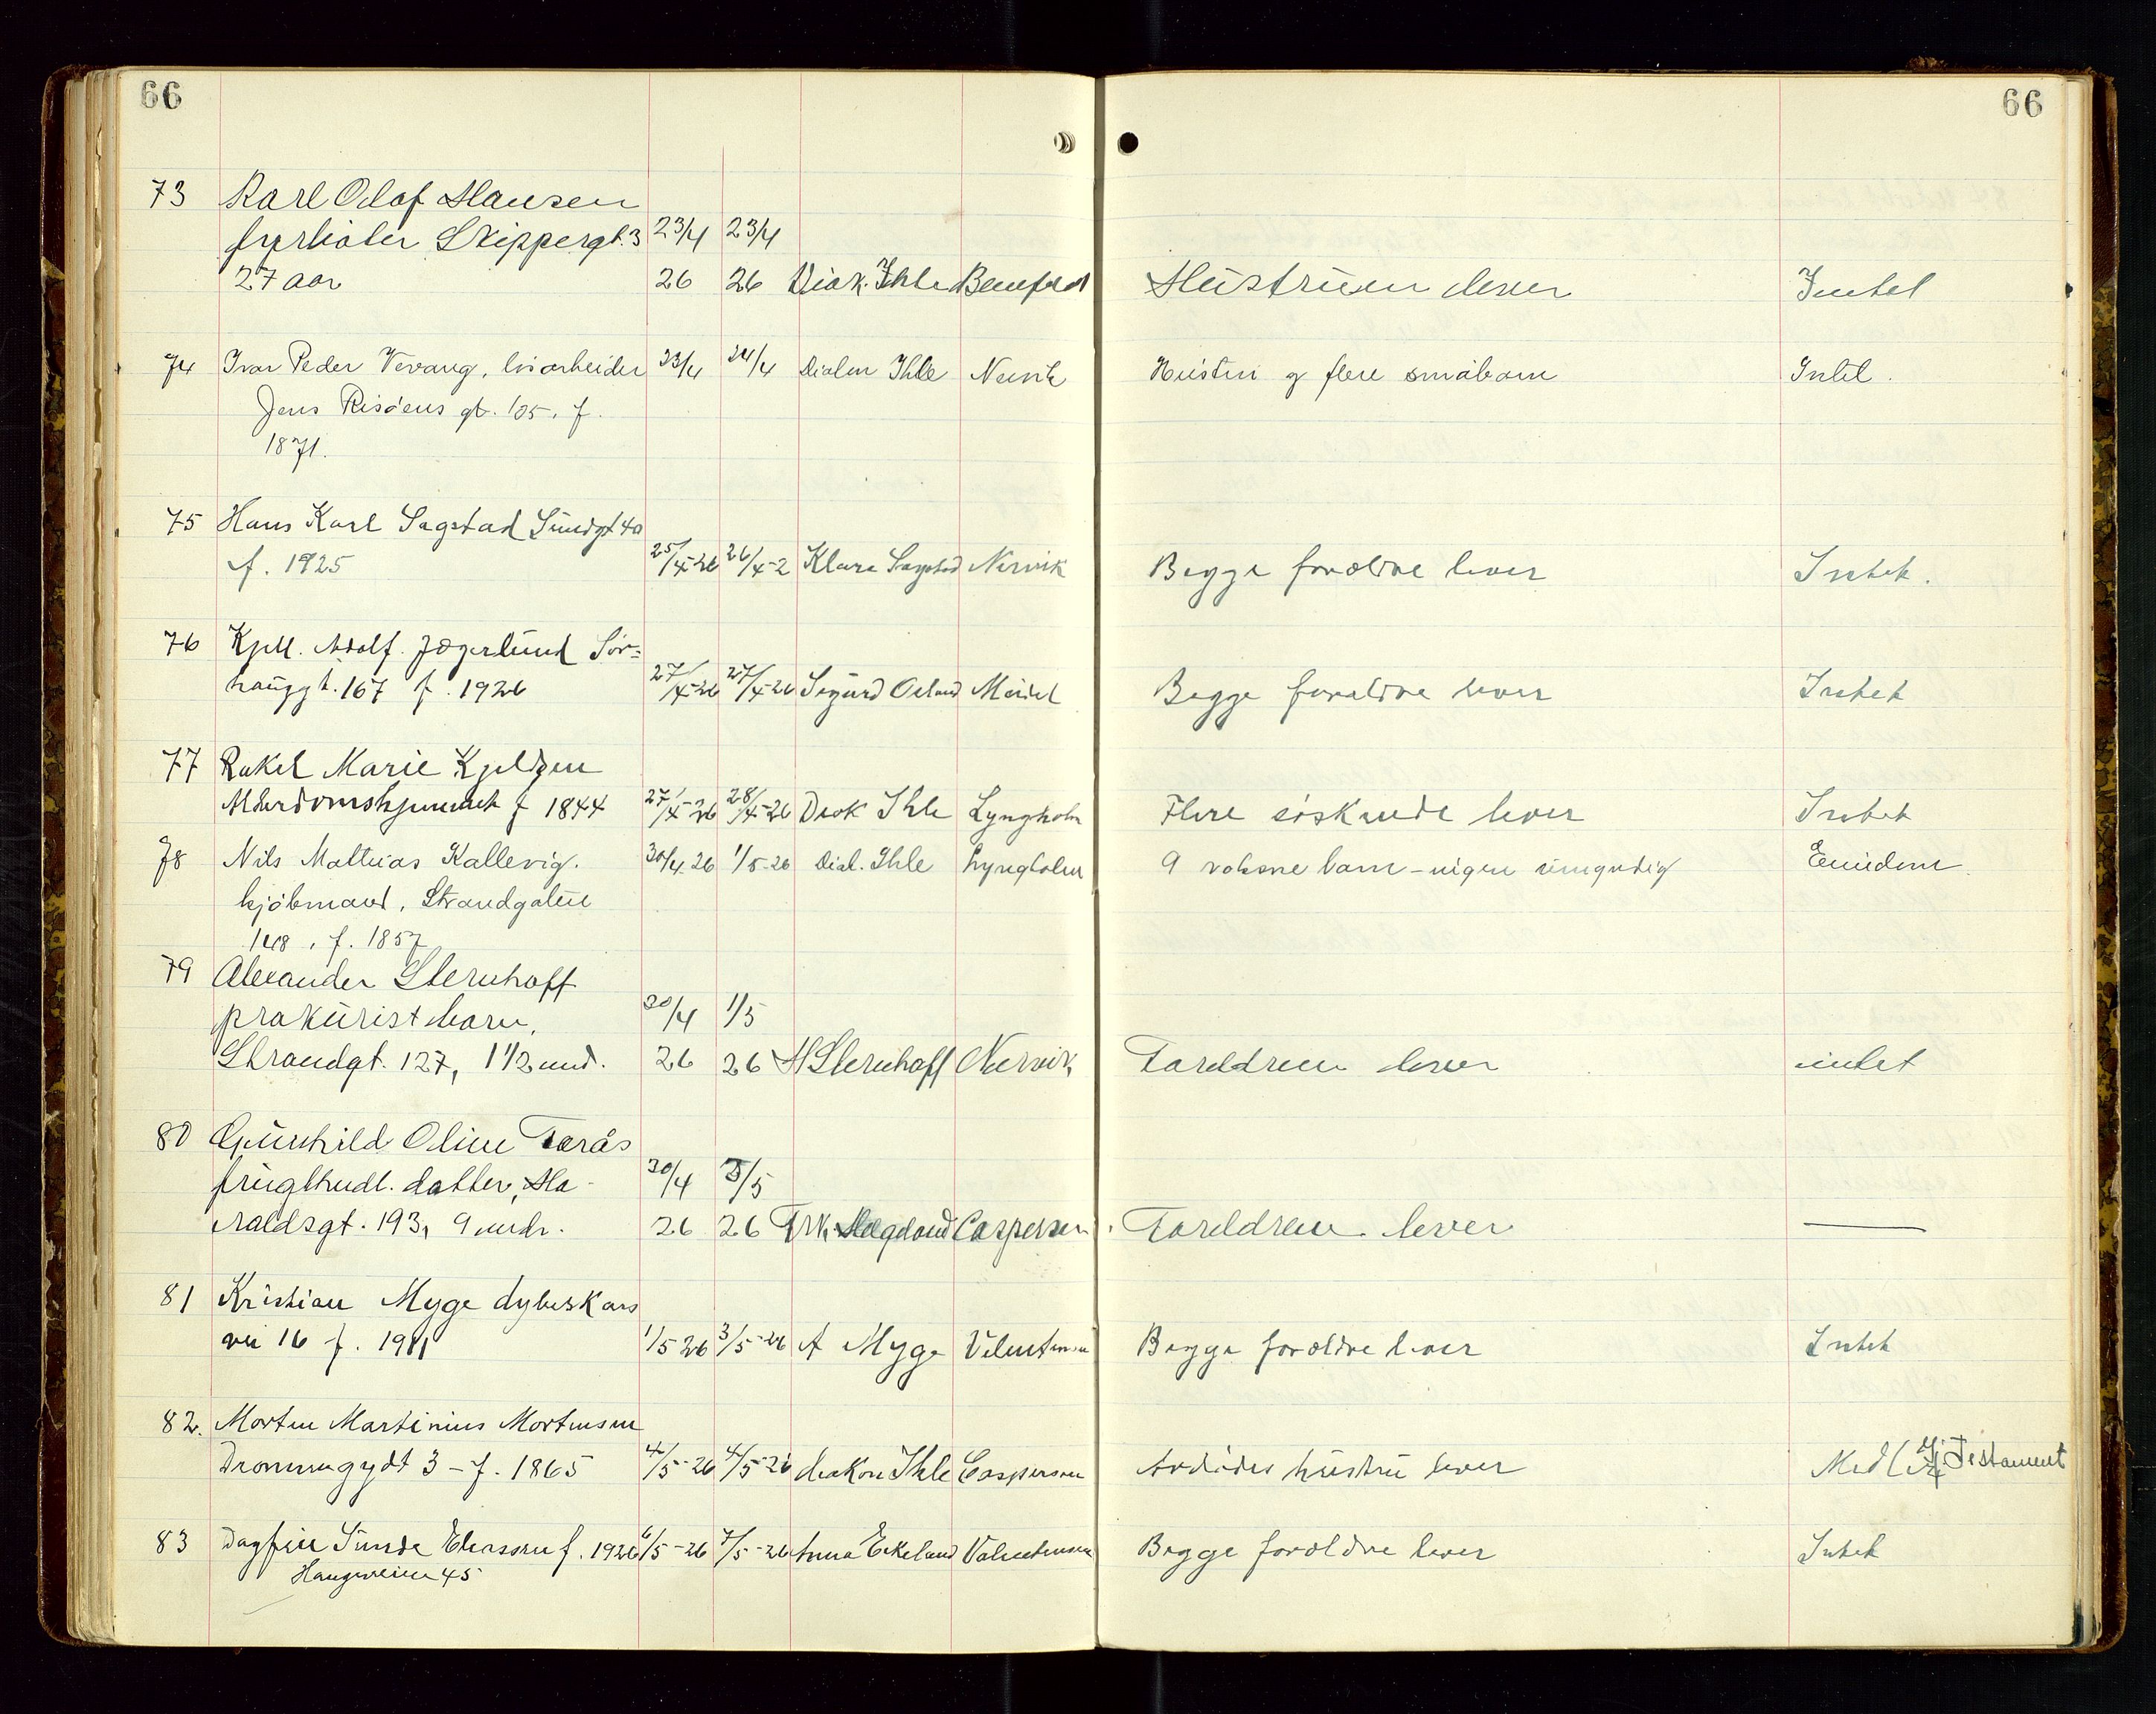 66
66
73 Karl Olaf Hansen
fyrbøter Skippergt. 3 23/4 23/4
27 aar 26 26 Diak. Ihle Hustruen lever Intet
74 Ivar Peder Vevang, løsarbeider 23/4 24/4 Diakon Ihle Nervik Hustru og flere småbarn Intet.
Jens Risøens gt. 105. f.
1871.
75 Hans Karl Sagstad Sundgt 40
f. 1925 25/4-26 26/4-2 Klara Sagstad Nervik Begge forældre lever Intet.
76 Kjell. Adolf. Jægerlund Sør=
hauggt. 167 f. 1926 27/4-26 27/4-26 Sigurd Begge forældre lever Intet
77 Rakel Marie Kjeldsen
Alderdomshjemmet f 1844 27/4-26 28/4-26 Diak Ihle Lyngholm Flere søskende lever Intet
78 Nils Mathias Kallevig. 30/4 26 1/5-26 Diak. Ihle Lyngholm 9 voksne barn - ingen umyndig Eiendom.
kjøbmand, Strandgaten
148, f. 1857
79 Alexander Sternhoff
prokurist barn, 30/4 1/5
Strandgt. 127, 1 1/2 mnd. 26 26 H Sternhoff Nervik Foreldrene lever intet
80 Gunhild Oline Terås
frugthndl. datter, Ha- 30/4 3/5
raldsgt. 193, 9 mdr. 26 26 Frk. Hægland Caspersen Foreldrene lever —
81 Kristian Myge dybeskars
vei 16 f. 1911 1/5 26 3/5-26 A Myge Valentinsen Begge forældre lever Intet
82. Morten Martinius Mortensen
Drommugydt 3 - f. 1865 4/5-26 4/5-26 diakon Ihle Caspersen Avdødes hustru lever Med Testament
83 Dagfin Sunde Eliassen f. 1926 6/5-26 7/5-26 Anna Eikeland Valentinsen Begge forældre lever Intet
Haugeveien 45